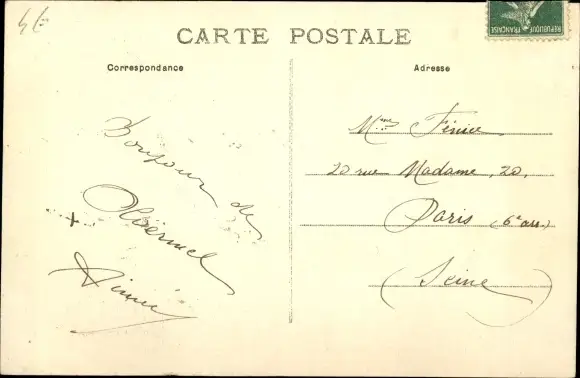 4 f
REPUBLIQUE FRANÇAISE
CARTE POSTALE
Correspondance
Adresse
Bonjour de
Ploërmel
Aimée
Mme Février
20 rue Madame, 20,
Paris (6e arr.)
(Seine)